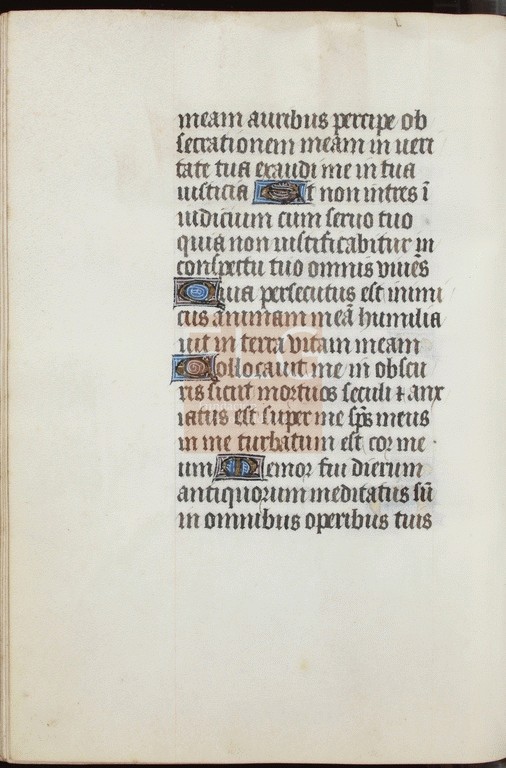 meam auribus percipe ob
secrationem meam in veri
tate tua exaudi me in tua
iusticia Et non intres ī
iudicium cum seruo tuo
quia non iustificabitur in
conspectu tuo omnis viuēs
Quia persecutus est inimi
cus animam meā humilia
uit in terra vitam meam
Collocauit me in obscu
ris sicut mortuos seculi ⁊ anx
iatus est super me sp̄s meus
in me turbatum est cor me
um Memor fui dierum
antiquorum meditatus sū
in omnibus operibus tuis